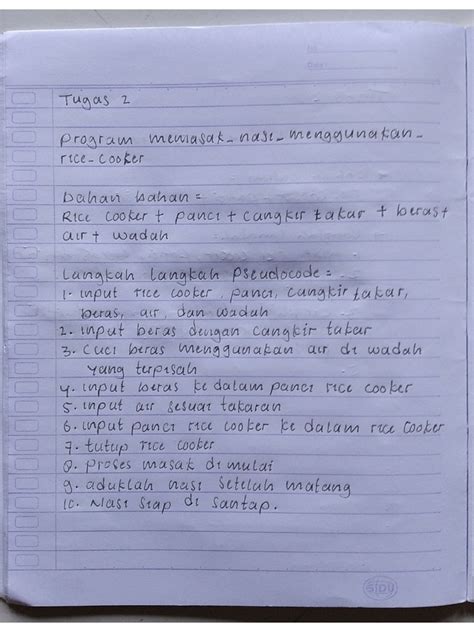 No.
Date:
Tugas 2
Program memasak_nasi_menggunakan_
rice_cooker
bahan bahan =
Rice cooker + panci + cangkir takar + beras +
air + wadah
Langkah langkah pseudocode =
1. input rice cooker, panci, cangkir takar,
beras, air, dan wadah
2. input beras dengan cangkir takar
3. Cuci beras menggunakan air di wadah
yang terpisah
4. input beras ke dalam panci rice cooker
5. input air sesuai takaran
6. input panci rice cooker ke dalam rice cooker
7. tutup rice cooker
8. proses masak di mulai
9. aduklah nasi setelah matang
10. Nasi siap di santap.
SIDU